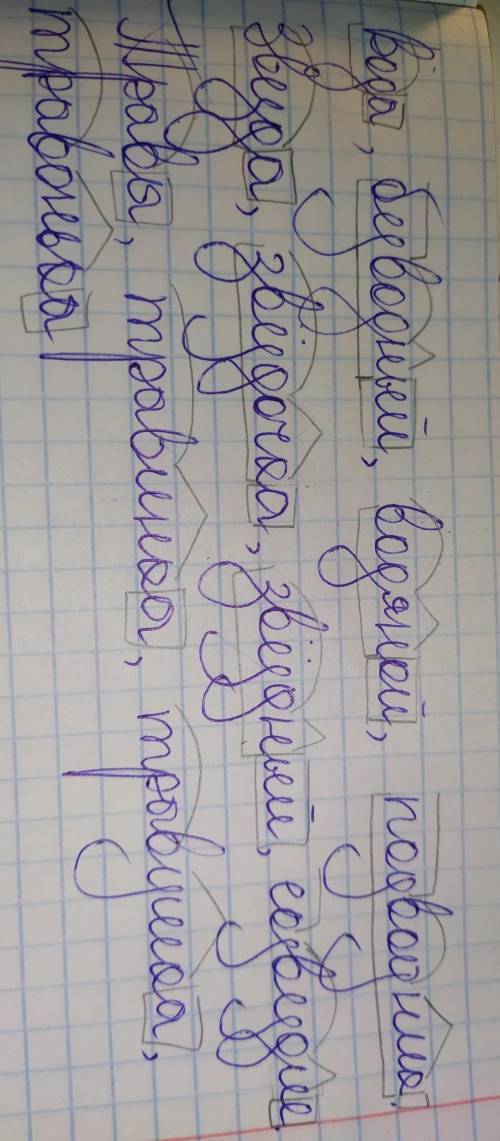 вода, безводный, водяной, подводник.
звезда, звёздочка, звёздный, созвездие.
Травы, травинка, травушка,
травонька